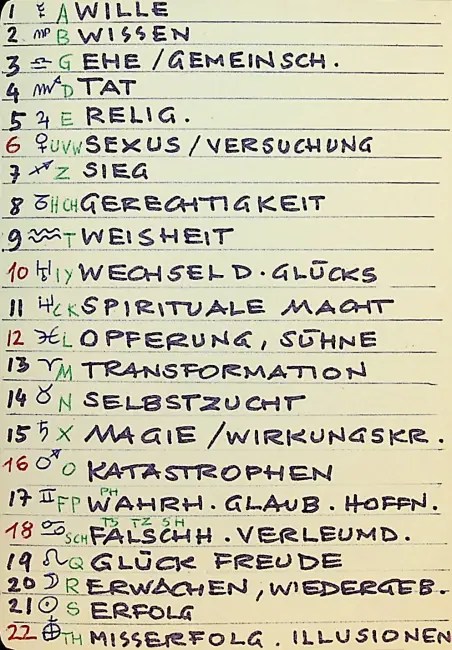 1 ☿ A WILLE
2 ♍ B WISSEN
3 ♎ G EHE / GEMEINSCH.
4 ♏ D TAT
5 ♃ E RELIG.
6 ♀ UVW SEXUS / VERSUCHUNG
7 ♐ Z SIEG
8 ♑ H CH GERECHTIGKEIT
9 ♒ T WEISHEIT
10 ♅ I Y WECHSEL D. GLÜCKS
11 ♆ C K SPIRITUALE MACHT
12 ♓ L OPFERUNG, SÜHNE
13 ♈ M TRANSFORMATION
14 ♉ N SELBSTZUCHT
15 ♄ X MAGIE / WIRKUNGSKR.
16 ♂ O KATASTROPHEN
17 ♊ F P PH WAHRH. GLAUB. HOFFN.
18 ♋ SCH TS TZ SH FALSCHH. VERLEUMD.
19 ♌ Q GLÜCK FREUDE
20 ☽ R ERWACHEN, WIEDERGEB.
21 ☉ S ERFOLG
22 TH MISSERFOLG. ILLUSIONEN